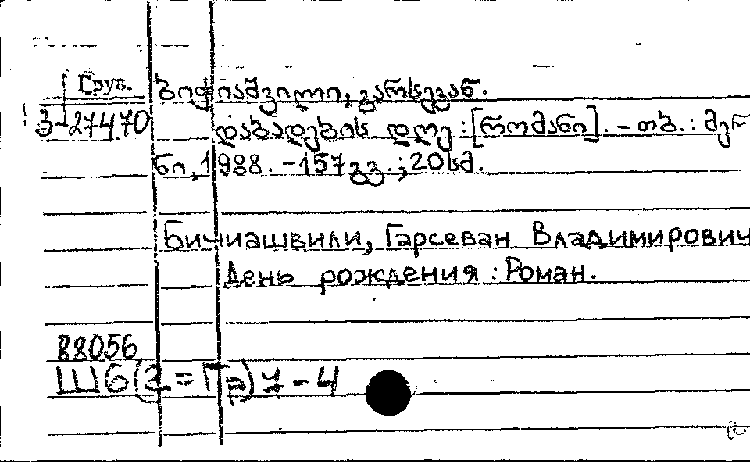 Груз.
ბიჭიაშვილი, გარსევან.
3-27470
დაბადების დღე : [რომანი]. - თბ. : მერ
ნი, 1988. - 157 გვ. ; 20 სმ.
Бичиашвили, Гарсеван Владимирович
День рождения : Роман.
88056
Ш6(2=Гр)7-4